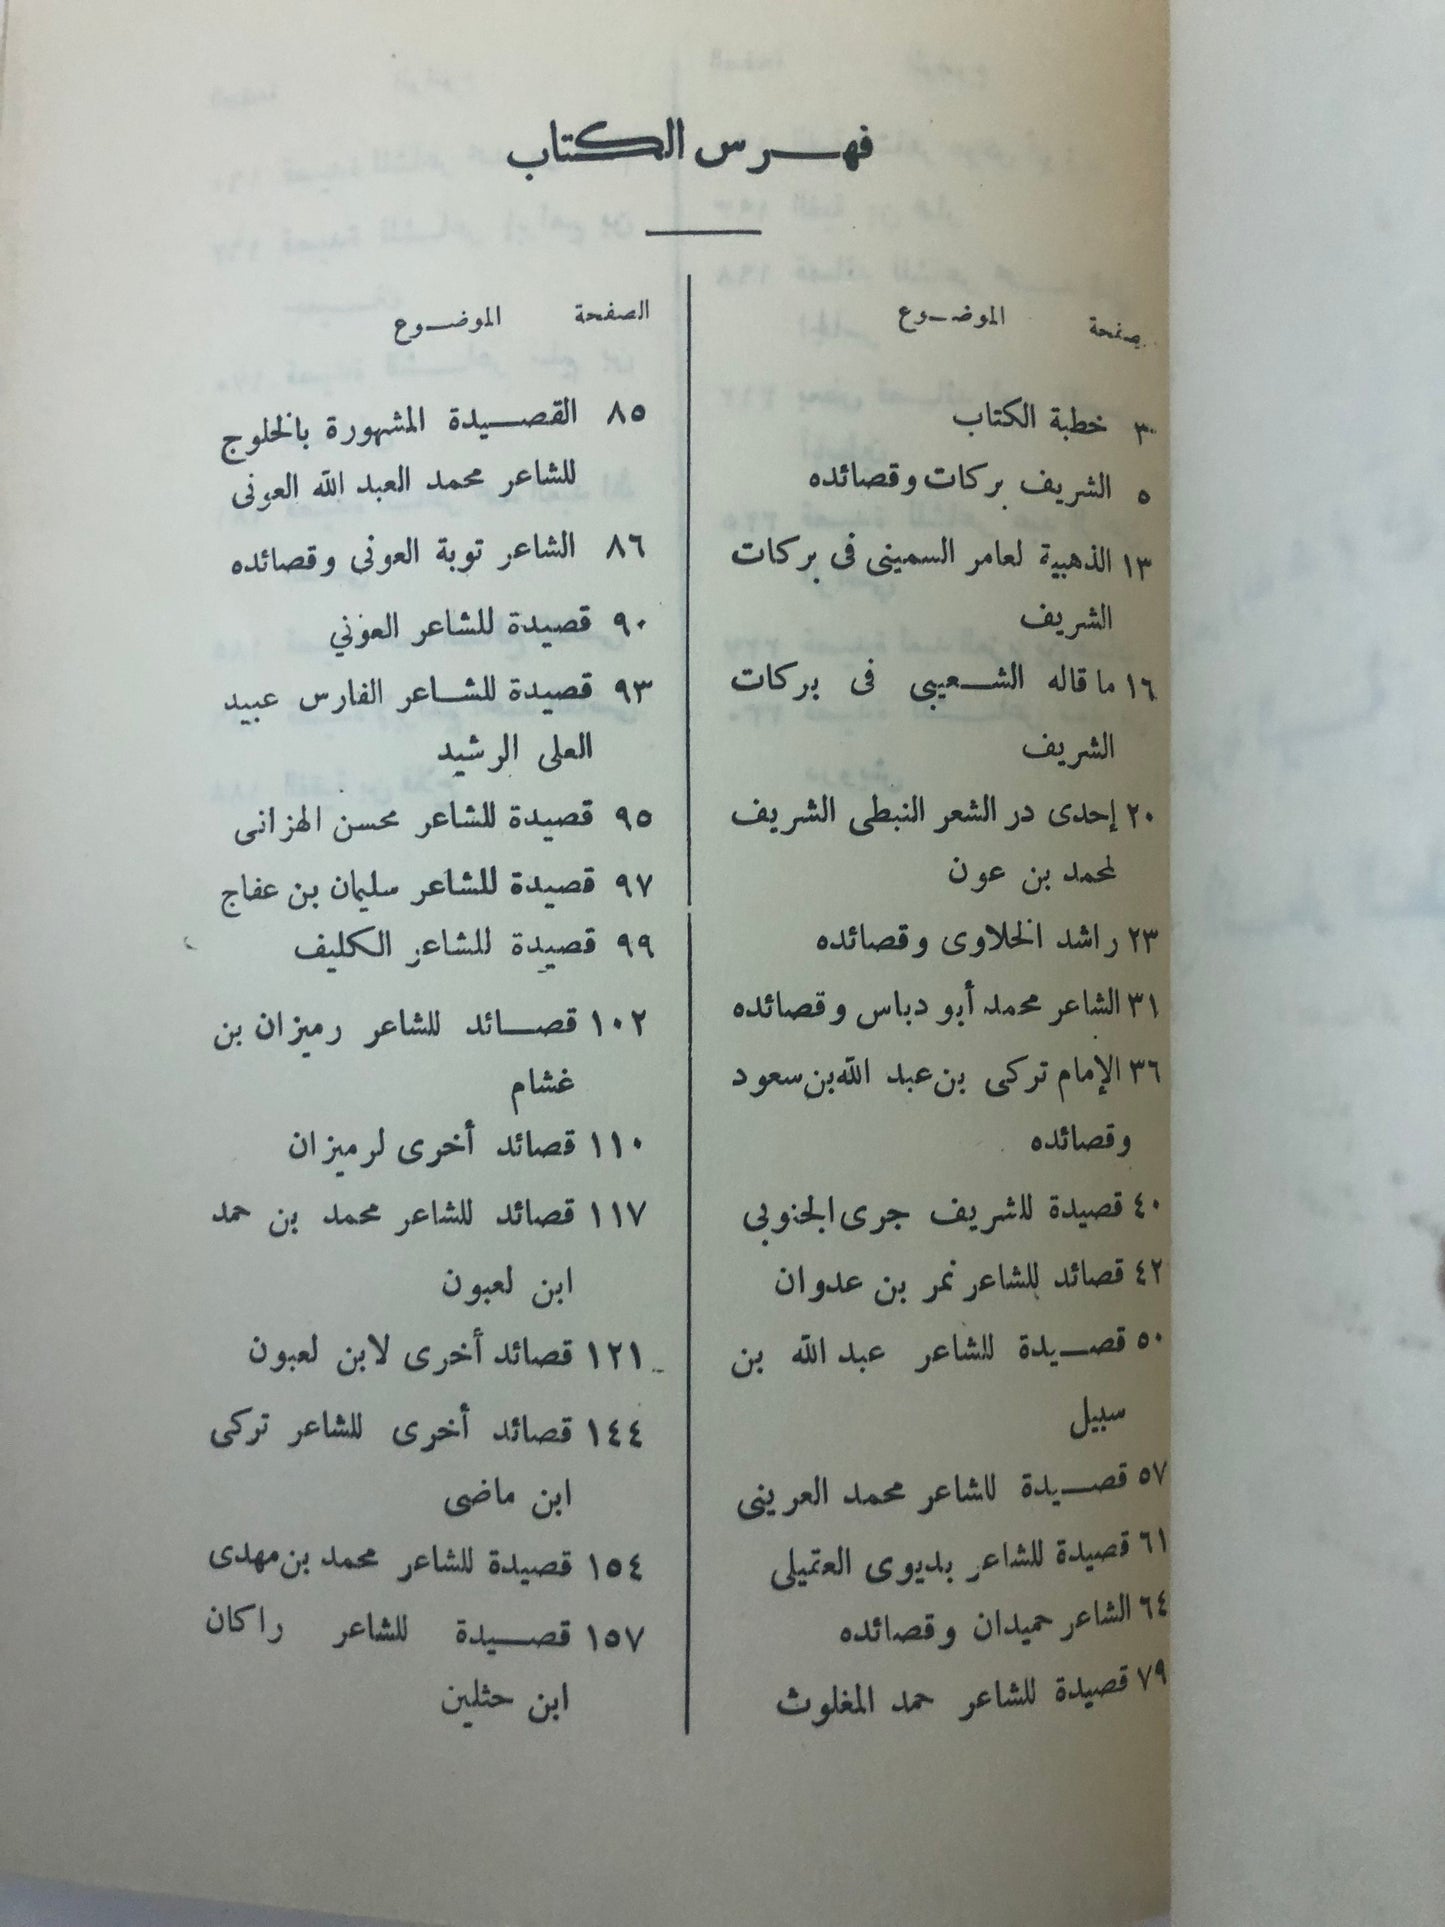 فهرس الكتاب
صفحة الموضوع
٣ خطبة الكتاب
٥ الشريف بركات وقصائده
١٣ الذهبية لعامر السمينى فى بركات
الشريف
١٦ ما قاله الشعيبى فى بركات
الشريف
٢٠ إحدى در الشعر النبطى الشريف
لمحمد بن عون
٢٣ راشد الخلاوى وقصائده
٣١ الشاعر محمد أبو دباس وقصائده
٣٦ الإمام تركى بن عبد الله بن سعود
وقصائده
٤٠ قصيدة للشريف جرى الجنوبى
٤٢ قصائد للشاعر نمر بن عدوان
٥٠ قصيدة للشاعر عبد الله بن
سبيل
٥٧ قصيدة للشاعر محمد العرينى
٦١ قصيدة للشاعر بديوى العتميلى
٦٤ الشاعر حميدان وقصائده
٧٩ قصيدة للشاعر حمد المغلوث
الصفحة الموضوع
٨٥ القصيدة المشهورة بالخلوج
للشاعر محمد العبد الله العونى
٨٦ الشاعر توبة العونى وقصائده
٩٠ قصيدة للشاعر العوني
٩٣ قصيدة للشاعر الفارس عبيد
العلى الرشيد
٩٥ قصيدة للشاعر محسن الهزانى
٩٧ قصيدة للشاعر سليمان بن عفاج
٩٩ قصيدة للشاعر الكليف
١٠٢ قصائد للشاعر رميزان بن
غشام
١١٠ قصائد أخرى لرميزان
١١٧ قصائد للشاعر محمد بن حمد
ابن لعبون
١٢١ قصائد أخرى لابن لعبون
١٤٤ قصائد أخرى للشاعر تركى
ابن ماضى
١٥٤ قصيدة للشاعر محمد بن مهدى
١٥٧ قصيدة للشاعر راكان
ابن حثلين